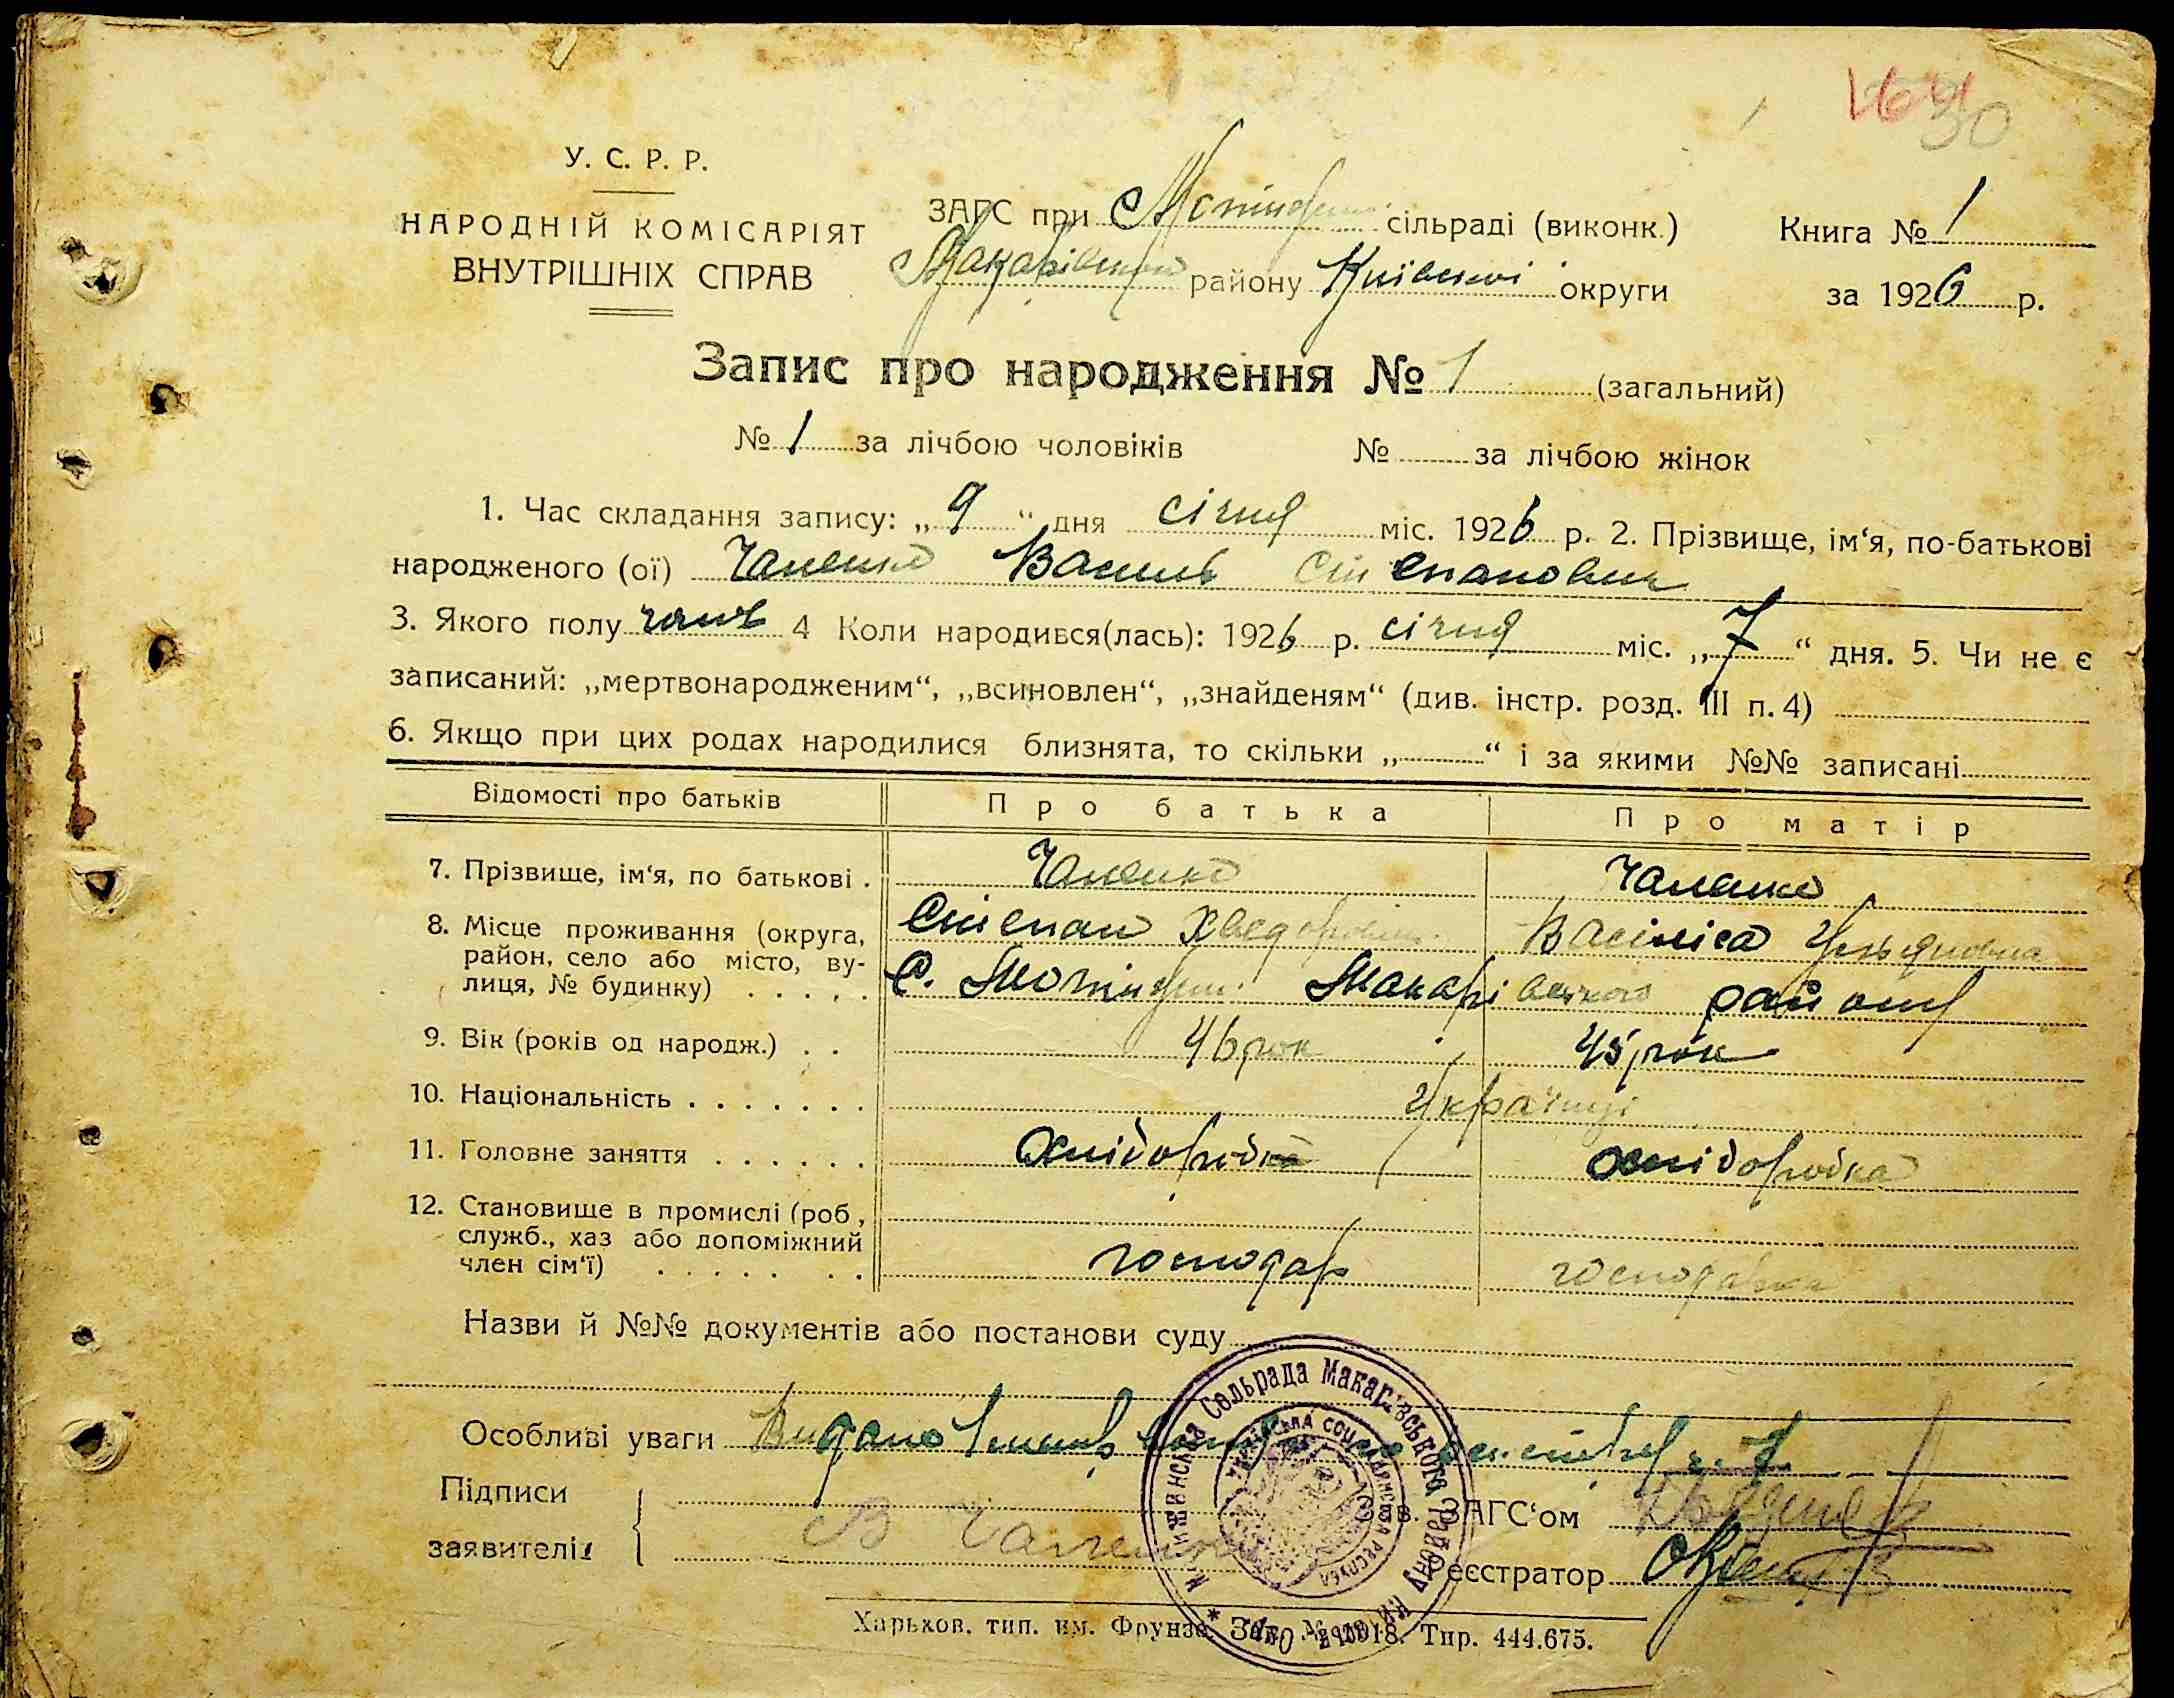 30
У. С. Р. Р.
НАРОДНІЙ КОМІСАРІЯТ
ВНУТРІШНІХ СПРАВ
ЗАГС при сільраді (виконк.)
Макарівського району Київської округи
Книга № 1
за 1926 р.
Запис про народження № 1 (загальний)
№ 1 за лічбою чоловіків № за лічбою жінок
1. Час складання запису: „9“ дня січня міс. 1926 р. 2. Прізвище, ім‘я, по-батькові
народженого (ої) Чаленко Василь Степанович
3. Якого полу чолов 4 Коли народився(лась): 1926 р. січня міс. „7“ дня. 5. Чи не є
записаний: „мертвонародженим“, „всиновлен“, „знайденям“ (див. інстр. розд. III п. 4)
6. Якщо при цих родах народилися близнята, то скільки „ “ і за якими №№ записані
Відомості про батьків Про батька Про матір
7. Прізвище, ім‘я, по батькові . Чаленко Чаленко
Степан Хведорович Васіліса
8. Місце проживання (округа,
район, село або місто, ву-
лиця, № будинку) . . . . . С. Макарівського району
9. Вік (років од народж.) . . 46 рок 45 рок
10. Національність . . . . . . . Українці
11. Головне заняття . . . . . . хлібороб хліборобка
12. Становище в промислі (роб,
служб., хаз або допоміжний
член сім‘ї) . . . . . . . господар господарка
Назви й №№ документів або постанови суду
Особливі уваги Видано
Підписи
заявителів В Чаленко
Зав. ЗАГС‘ом
Реєстратор
Сельрада Макарівського Району
Харьков. тип. им. Фрунзе. Зак. № 1918. Тир. 444.675.